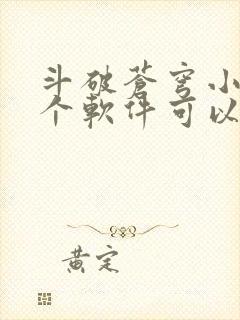 斗破蒼穹小
个軟件可以
黄定